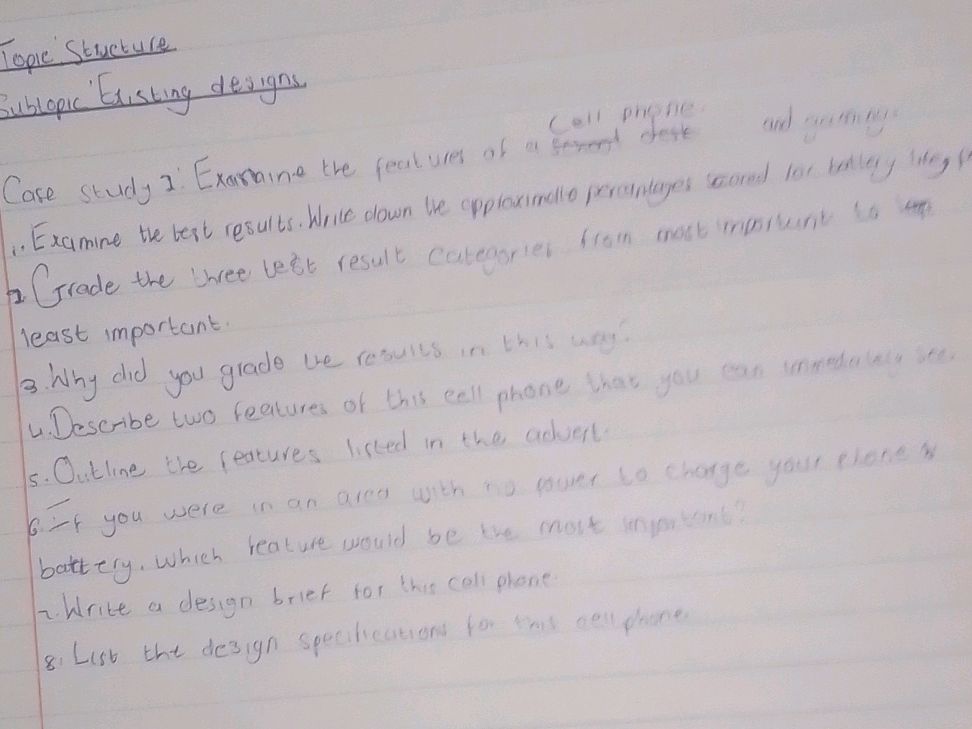 Topic: Structure
Subtopic: Existing designs
Case study 1: Examine the features of a cell phone.
1. Examine the test results. Write down the approximate percentages scored for battery life, and gaming.
2. Grade the three test result categories from most important to
least important.
3. Why did you grade the results in this way?
4. Describe two features of this cell phone that you can immediately see.
5. Outline the features listed in the advert.
6. If you were in an area with no power to charge your phone
battery. Which feature would be the most important?
7. Write a design brief for this cell phone.
8. List the design specifications for this cell phone.